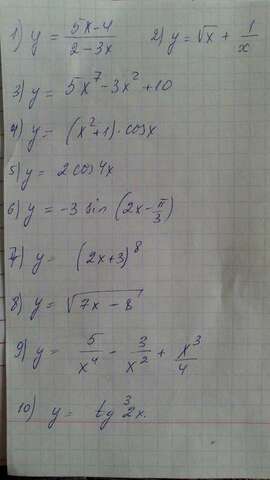 1) y = (5x-4)/(2-3x)   2) y = √x + 1/x
3) y = 5x⁷-3x²+10
4) y = (x²+1)·cosx
5) y = 2cos4x
6) y = -3 sin (2x-π/3)
7) y = (2x+3)⁸
8) y = √(7x-8)
9) y = 5/x⁴ - 3/x² + x³/4
10) y = tg³2x.